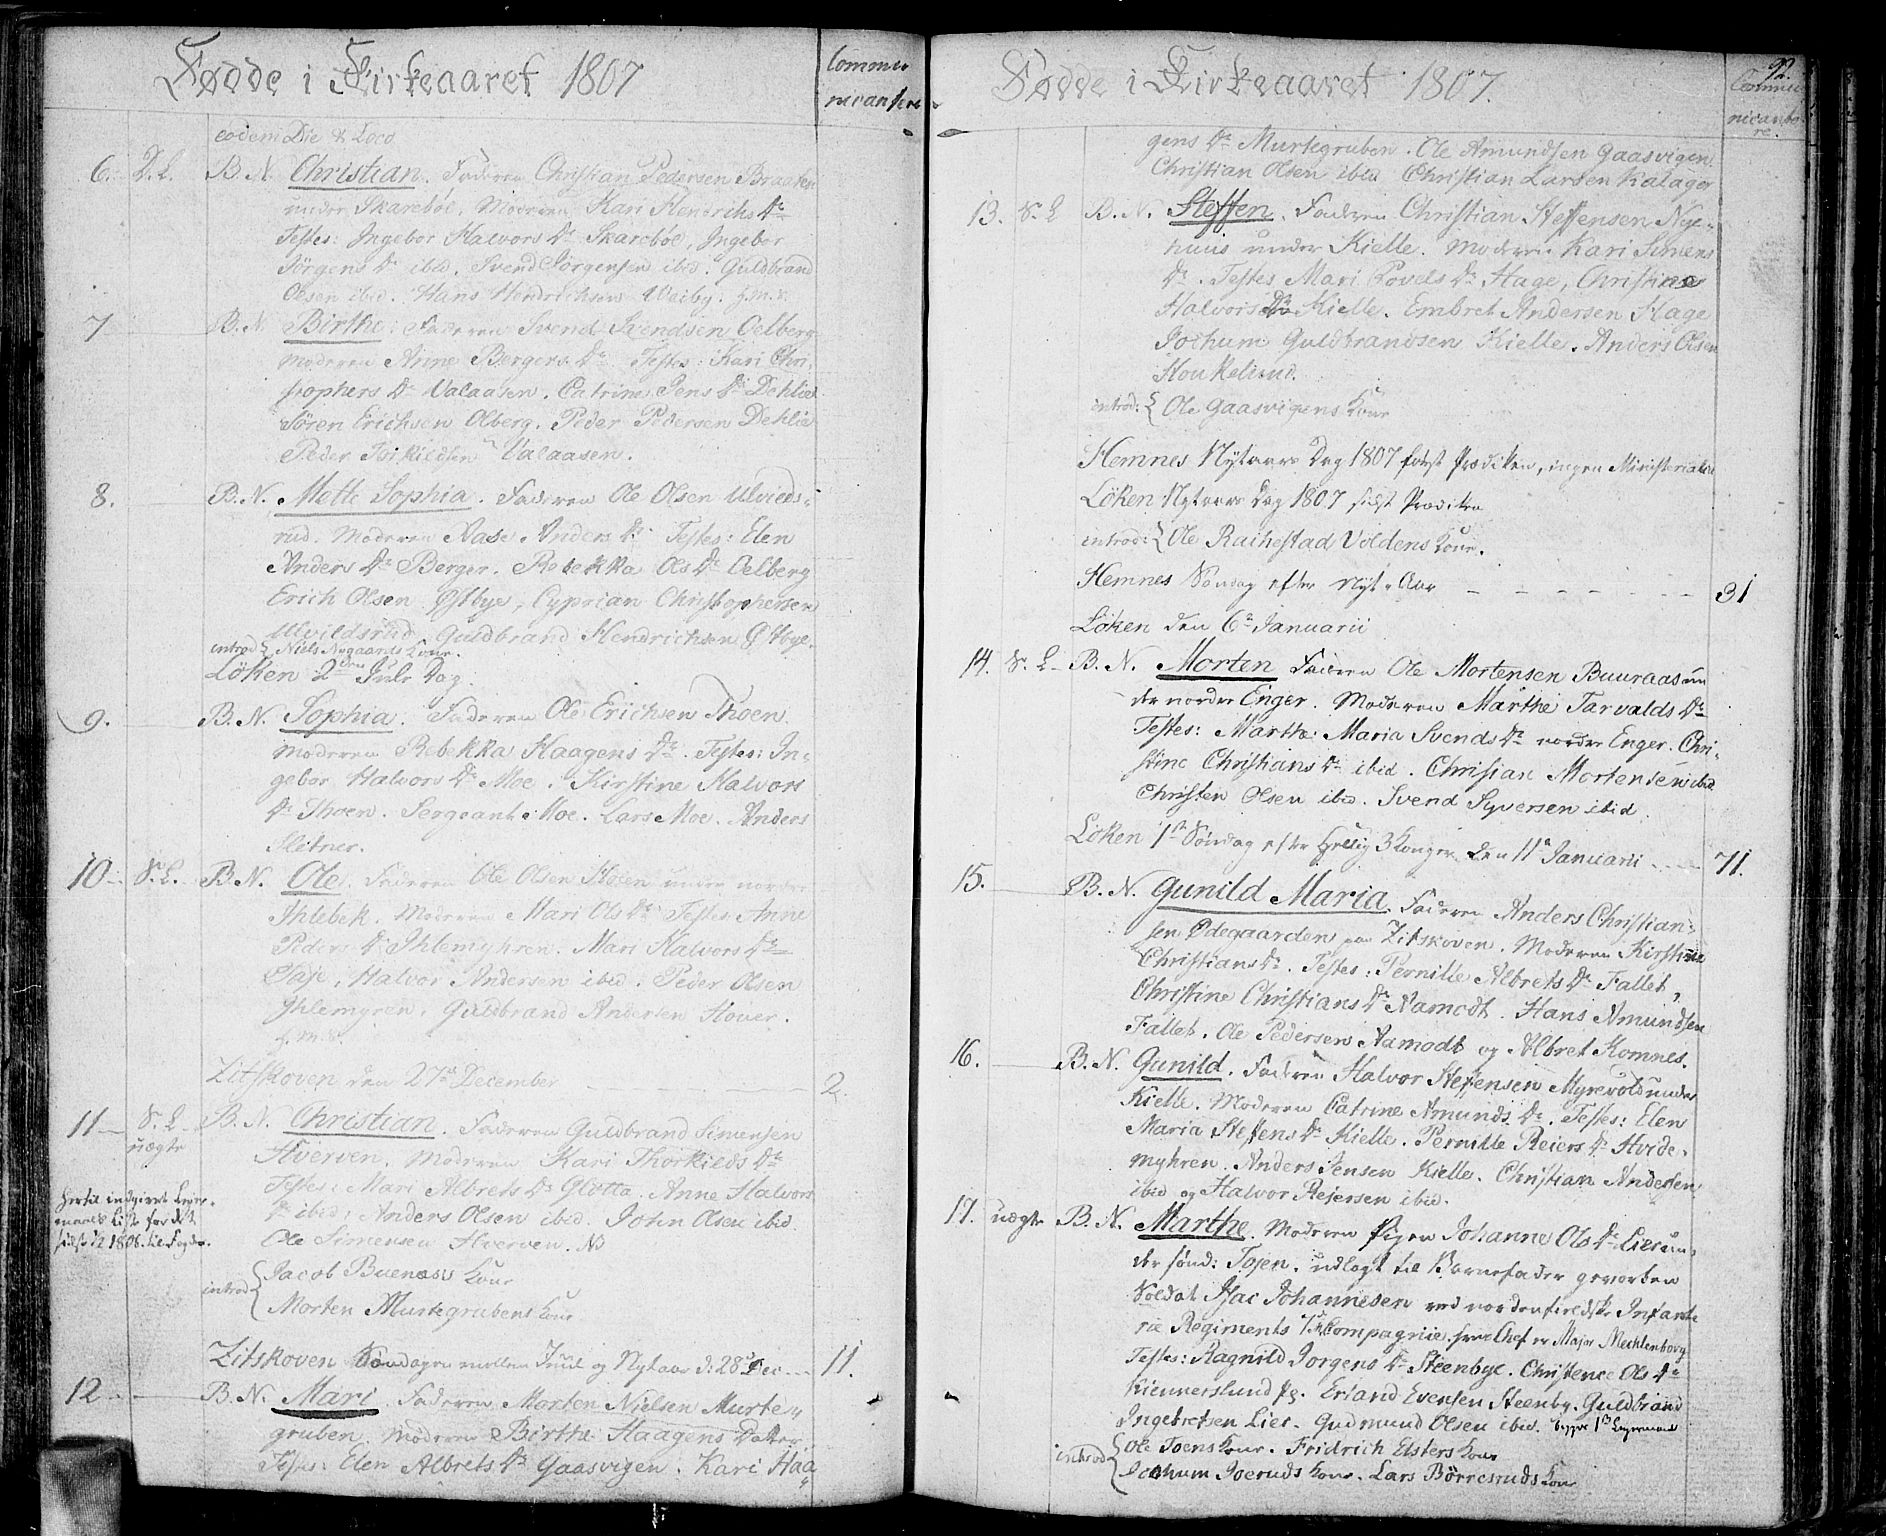 Fødde i Kirkeaaret 1807
Commu
nicantere
eodem Die & Loco
6. D. L. B. N. Christian. Faderen Christian Pedersen Braaten
under Skarebøl. Moderen Kari Hendrichs Dr
Testes: Ingebor Halvors Dr Skarebøl, Ingebor
Jörgens Dr ibid. Svend Jörgensen ibid. Guldbrand
Olsen ibid. Hans Hendrichsen Waiby. f.m.v.
7 B. N. Birthe. Faderen Svend Svendsen Oelberg
Moderen Anne Bergers Dr Testes: Kari Chri-
stophers Dr Valaasen. Catrine Jens Dr Dehlie
Sören Erichsen Olberg. Peder Pedersen Dehlie
Peder Valaasen.
8. B. N. Mette Sophia. Faderen Ole Olsen Ulvieds-
rud. Moderen Aase Anders Dr Testes: Elen
Anders Dr Berger. Rebekka Ols Dr Oelberg
Erich Olsen Østbye, Cyprian Christophersen
Ulvildsrud Guldbrand Hendrichsen Østbye.
introd { Niels Nygaards Kone.
Löken 2den Jule Dag.
9. B. N. Sophia. Faderen Ole Erichsen Thoen.
Moderen Rebekka Haagens Dr. Testes: In-
gebor Halvors Dr Moe. Kirstine Halvors
Dr Thoen. Sergeant Moe. Lars Moe. Anders
Slitner.
10. S. L. B. N. Ole. Faderen Ole Olsen Hosen under nordre
Ihlebek. Moderen Mari Ols Dr Testes Anne
Peders Dr Ihlemyhren. Mari Halvors Dr
Halvor Andersen ibid. Peder Olsen
Ihlemyren. Guldbrand Andersen Hover.
f. m. v.
Zitskoven den 27de December 2.
11 S. L. B. N. Christian. Faderen Guldbrand Simensen
uægte Hverven. Moderen Kari Thorkilds Dr
Testes: Mari Albrets Dr Glotta. Anne Halvors
Dr ibid, Anders Olsen ibid. John Olsen ibid.
Ole Simensen Hverven.
Hertil indgivet Leier-
maals List for det
sidst 1/2 1806. til Fogden.
introd { Jacob Buenæs Kone
Morten Murtegrubens Kone
Zitskoven Söndagen mellem Juul og Nytaar d: 28de Dec 11.
12 B. N. Mari. Faderen Morten Nielsen Murte-
gruben. Moderen Birthe Haagens Datter
Testes: Elen Albrets Dr Gaasvigen. Kari Haa
Fødde i Kirkeaaret 1807.
92.
Commu
nicante-
re.
gens Dr Murtegruben. Ole Amundsen Gaasvigen
Christian Olsen ibid Christian Larsen Kalager
13. S. L B. N. Steffen. Faderen Christian Steffensen Nye-
huus under Kielle. Moderen Kari Simens
Dr. Testes Mari Povels Dr Hage, Christine
Halvors Dr Kielle. Embret Andersen Hage
Jochum Guldbrandsen Kielle. Anders Olsen
Hou
introd: { Ole Gaasvigens Kone
Hemnes Nytaars Dag 1807 först Prædiken, ingen Ministerialia
Löken Nytaars Dag 1807 sidst Prædiken
introd: { Ole Rakkestad Voldens Kone.
Hemnes Söndag efter Nyt-Aar 31
Löken den 6te Januarii
14. S. L B. N. Morten Faderen Ole Mortensen Buuraas un
der nordre Enger. Moderen Marthe Tarvalds Dr
Testes: Marthe Maria Svends Dr nordre Enger. Chri-
stine Christians Dr ibid. Christian Mortensen ibid
Christen Olsen ibid. Svend Syversen ibid.
Löken 1ste Söndag efter Hellig 3 Konger den 11te Januarii 71.
15. B. N. Gunild Maria. Faderen Anders Christian-
sen Ødegaarden paa Zitskoven. Moderen Kirstine
Christians Dr. Testes: Pernille Albrets Dr Fallet,
Christine Christians Dr Aamodt. Hans Amundsen
Fallet. Ole Pedersen Aamodt og Albret Komnes.
16. B. N. Gunild. Faderen Halvor Steffensen Myrevold under
Kielle. Moderen Catrine Amunds Dr. Testes: Elen
Maria Steffens Dr Kielle. Pernille Reiers Dr Hvide-
myhren. Anders Jensen Kielle. Christian Andersen
ibid og Halvor Rejersen ibid.
17. uægte B. N. Marthe. Moderen Pigen Johanne Ols Dr Lier un-
der sönd: Tojen. udlagt til Barnefader geworben
Soldat Isac Johannesen ved nordenfieldske Infante
rie Regiments 1ste Compagnie, hvis Chef er Major Mecklenborg
Testes: Ragnild Jorgens Dr Steenbye. Christence Ols Dr
Kiennerslund pg. Erland Evensen Steenby. Guldbrand
Ingebretsen Lier. Gudmund Olsen ibid. begges 1ste Leiermaal
introd { Ole Toens Kone. Fridrich Elsters Kone
Jochum Joeruds Kone. Lars Börresruds Kone